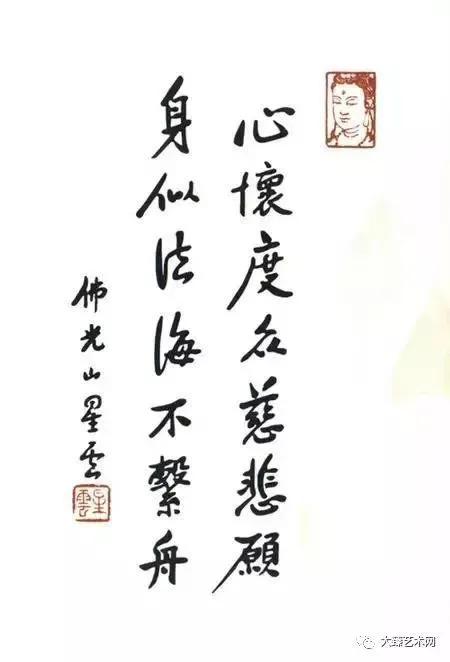 心懷度众慈悲願
身似法海不繫舟
佛光山星雲
星雲
大臻艺术网